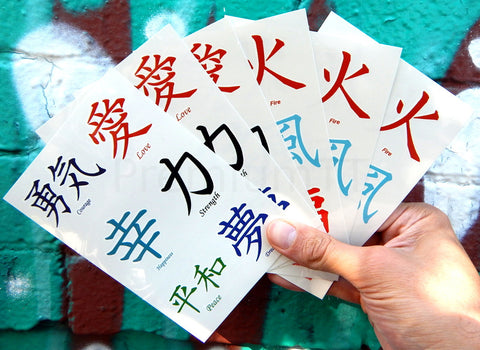 勇気
Courage
愛
Love
幸
Happiness
力
Strength
平和
Peace
夢
愛
Love
火
Fire
火
Fire
火
Fire